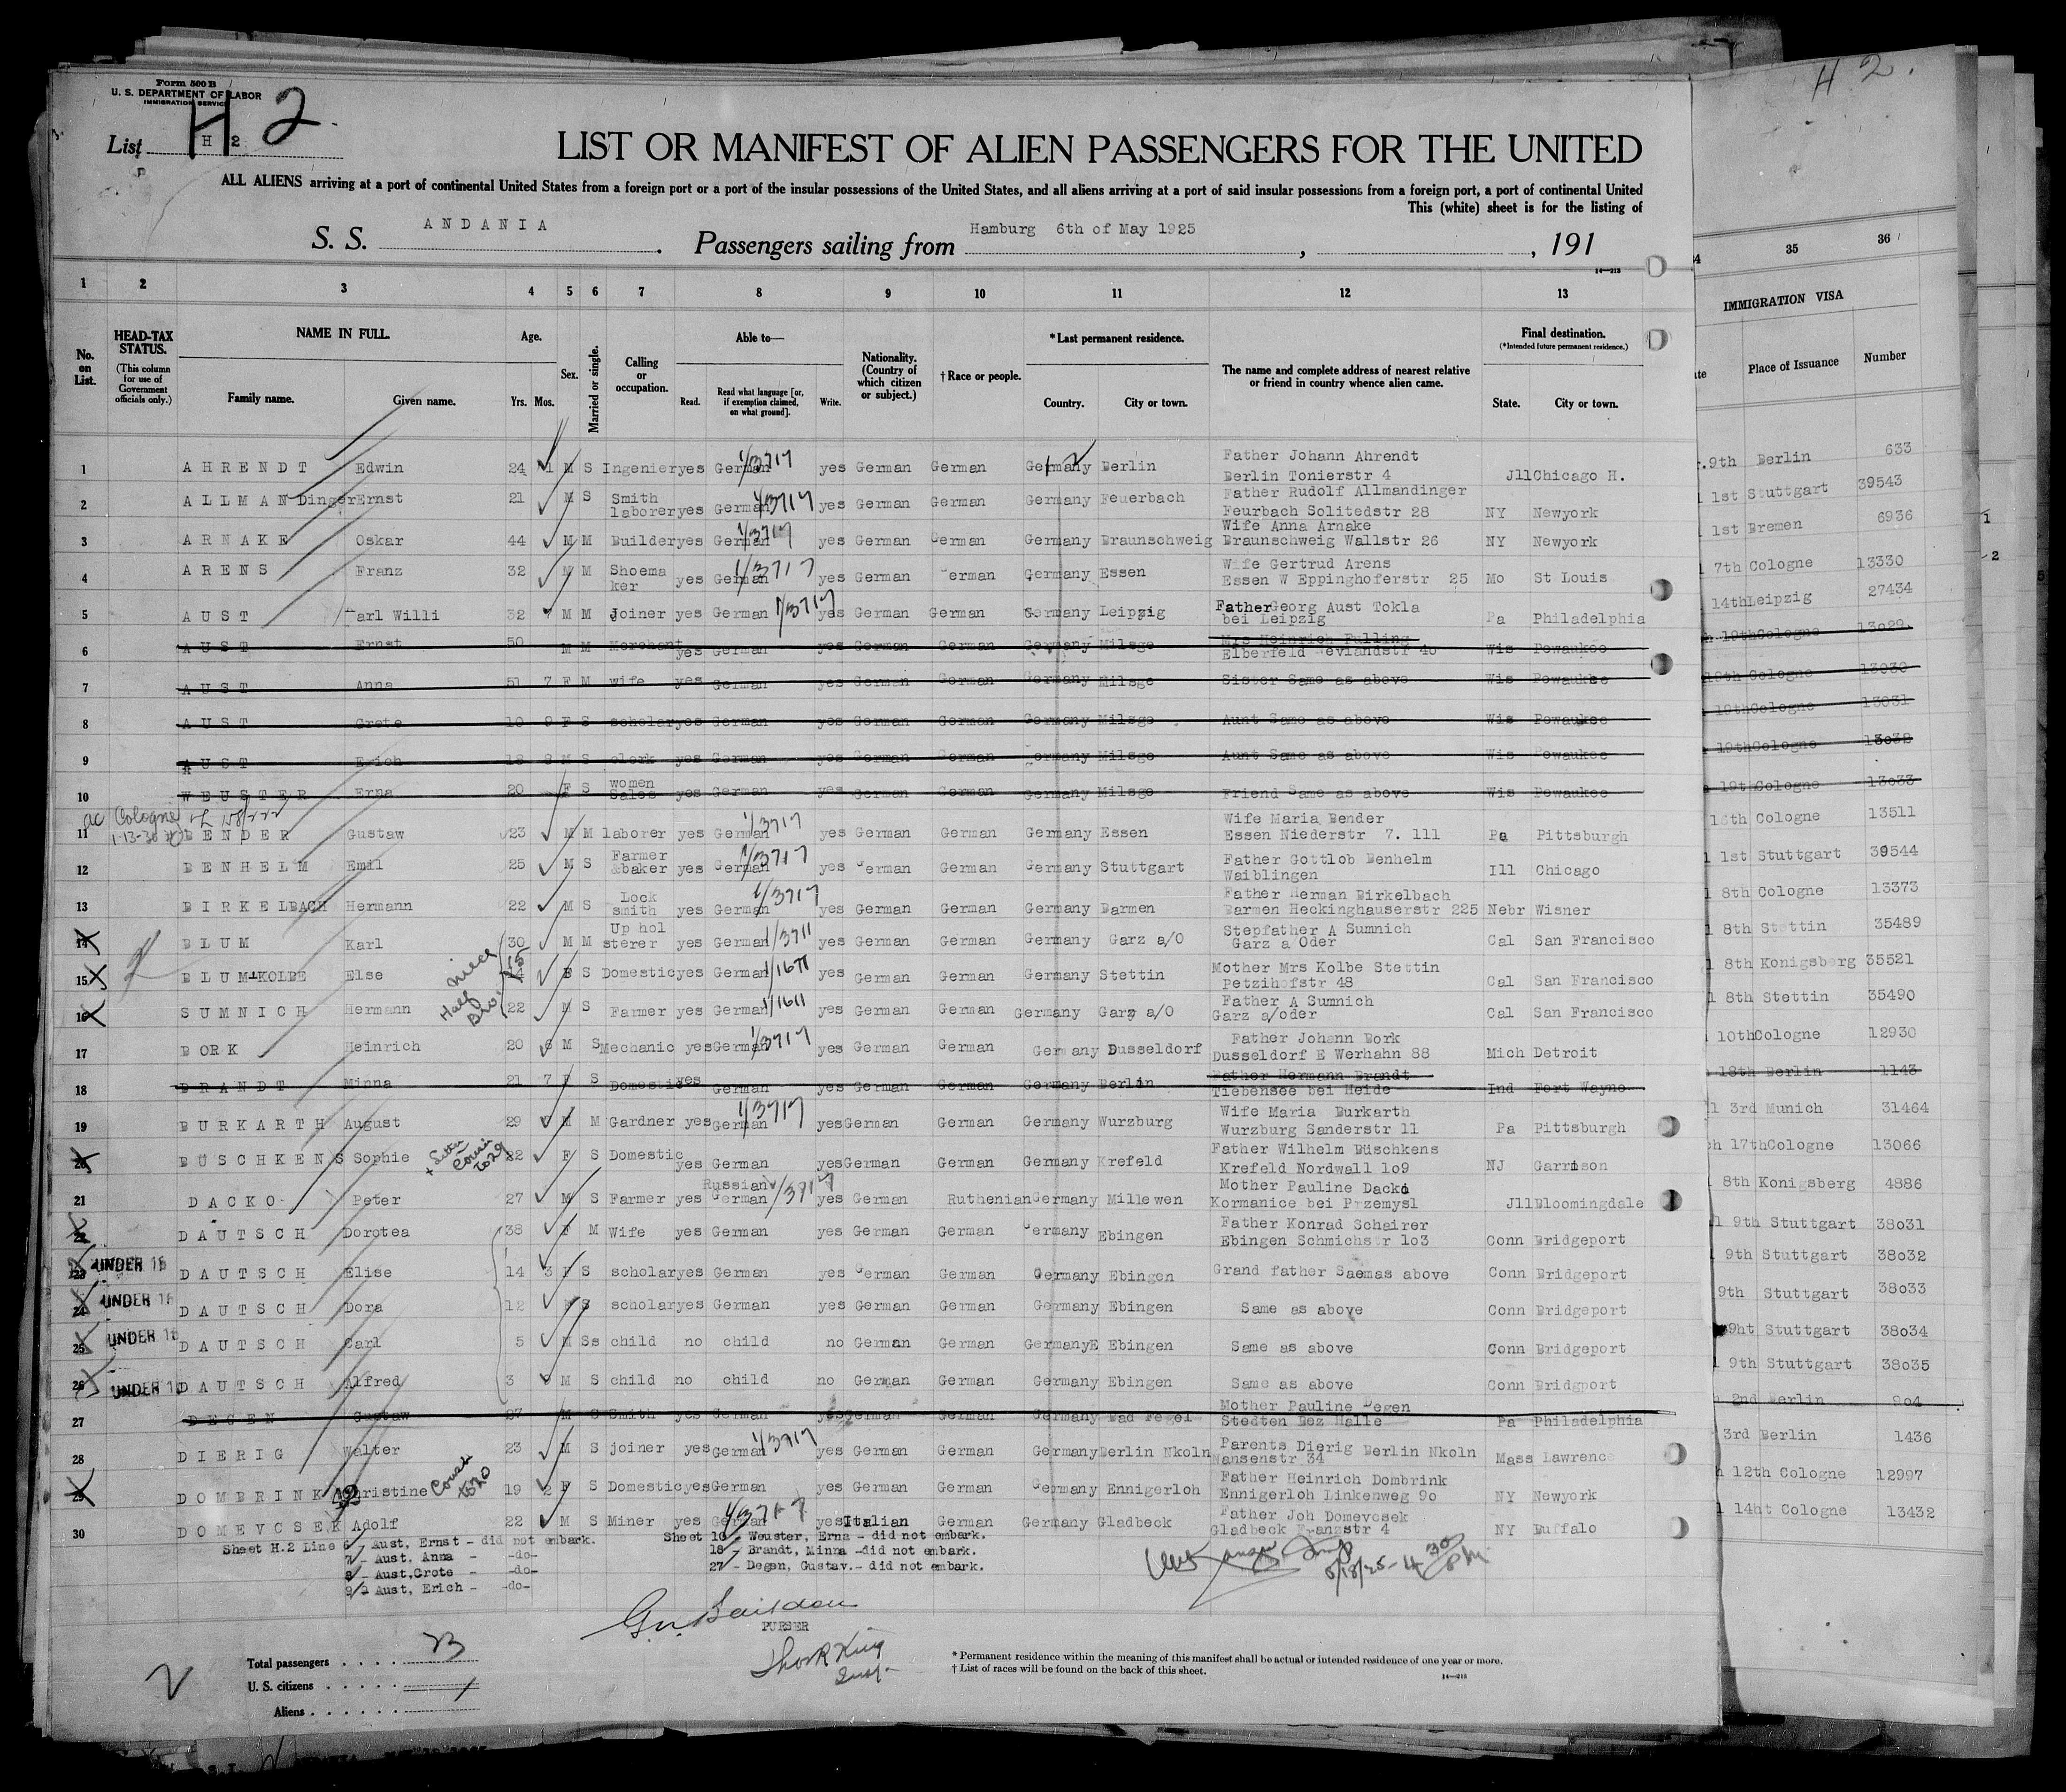 Form 500 B
U. S. DEPARTMENT OF LABOR
IMMIGRATION SERVICE
H 2
H 2.
List H 2
LIST OR MANIFEST OF ALIEN PASSENGERS FOR THE UNITED
ALL ALIENS arriving at a port of continental United States from a foreign port or a port of the insular possessions of the United States, and all aliens arriving at a port of said insular possessions from a foreign port, a port of continental United
This (white) sheet is for the listing of
S. S. ANDANIA. Passengers sailing from Hamburg 6th of May 1925, , 191
14—213
1 2 3 4 5 6 7 8 9 10 11 12 13 35 36
IMMIGRATION VISA
No. on List.
HEAD-TAX STATUS.
(This column for use of Government officials only.)
NAME IN FULL.
Family name. Given name.
Age.
Yrs. Mos.
Sex.
Married or single.
Calling or occupation.
Able to—
Read. Read what language [or, if exemption claimed, on what ground]. Write.
Nationality. (Country of which citizen or subject.)
† Race or people.
* Last permanent residence.
Country. City or town.
The name and complete address of nearest relative or friend in country whence alien came.
Final destination.
(*Intended future permanent residence.)
State. City or town.
Place of Issuance Number
1 AHRENDT Edwin 24 1 M S Ingenier yes German yes German German Germany Berlin Father Johann Ahrendt Berlin Tonierstr 4 Jll Chicago H. 9th Berlin 633
2 ALLMANDinger Ernst 21 M S Smith laborer yes German yes German German Germany Feuerbach Father Rudolf Allmandinger Feurbach Solitedstr 28 NY Newyork 1st Stuttgart 39543
3 ARNAKE Oskar 44 M M Builder yes German yes German German Germany Braunschweig Wife Anna Arnake Braunschweig Wallstr 26 NY Newyork 1st Bremen 6936
4 ARENS Franz 32 M M Shoemaker yes German yes German erman Germany Essen Wife Gertrud Arens Essen W Eppinghoferstr 25 Mo St Louis 7th Cologne 13330
5 AUST arl Willi 32 M M Joiner yes German yes German German Germany Leipzig Father Georg Aust Tokla bei Leipzig Pa Philadelphia 14th Leipzig 27434
6 AUST Ernst 50 M M Merchant yes German yes German German Germany Milsge Mrs Heinrich Fulling Elberfeld evlandstr 40 Wis Pewaukee 19th Cologne 13029
7 AUST Anna 51 7 F M wife yes German yes German German Germany Milsge Sister Same as above Wis Pewaukee 19th Cologne 13030
8 AUST Grete 10 9 F S scholar yes German yes German German Germany Milsge Aunt Same as above Wis Pewaukee 19th Cologne 13031
9 AUST Erich 18 8 M S clerk yes German yes German German Germany Milsge Aunt Same as above Wis Pewaukee 19th Cologne 13032
10 WEUSTER Erna 20 F S women Sales yes German yes German German Germany Milsge Friend Same as above Wis Pewaukee 19t Cologne 13033
11 BENDER Gustaw 23 M M laborer yes German yes German German Germany Essen Wife Maria Bender Essen Niederstr 7. 111 Pa Pittsburgh Cologne 13511
12 BENHELM Emil 25 M S Farmer &baker yes German yes German German Germany Stuttgart Father Gottlob Benhelm Waiblingen Ill Chicago 1st Stuttgart 39544
13 BIRKELBACH Hermann 22 M S Lock smith yes German yes German German Germany Barmen Father Herman Birkelbach Barmen Heckinghauserstr 225 Nebr Wisner 8th Cologne 13373
14 BLUM Karl 30 M M Up holsterer yes German yes German German Germany Garz a/O Stepfather A Sumnich Garz a Oder Cal San Francisco 8th Stettin 35489
15 BLUM-KOLBE Else F S Domestic yes German yes German German Germany Stettin Mother Mrs Kolbe Stettin Petzihofstr 48 Cal San Francisco 8th Konigsberg 35521
16 SUMNICH Hermann 22 M S Farmer yes German yes German German Germany Garz a/O Father A Sumnich Garz a/oder Cal San Francisco 8th Stettin 35490
17 BORK Heinrich 20 6 M S Mechanic yes German yes German German Germany Dusseldorf Father Johann Bork Dusseldorf E Werhahn 88 Mich Detroit 10th Cologne 12930
18 BRANDT Minna 21 7 F S Domestic yes German yes German German Germany Berlin Father Hermann Brandt Tiebensee bei Heide Ind Fort Wayne 18th Berlin 1143
19 BURKARTH August 29 M M Gardner yes German yes German German Germany Wurzburg Wife Maria Burkarth Wurzburg Sanderstr 11 Pa Pittsburgh 3rd Munich 31464
20 BUSCHKENS Sophie 22 F S Domestic yes German yes German German Germany Krefeld Father Wilhelm Büschkens Krefeld Nordwall 1o9 NJ Garrison 17th Cologne 13066
21 DACKO Peter 27 M S Farmer yes Russian German yes German Ruthenian Germany Millewen Mother Pauline Dacko Kormanice bei Przemysl Jll Bloomingdale 8th Konigsberg 4886
22 DAUTSCH Dorotea 38 F M Wife yes German yes German German Germany Ebingen Father Konrad Schairer Ebingen Schmichstr 1o3 Conn Bridgeport 9th Stuttgart 38o31
23 UNDER 16 DAUTSCH Elise 14 3 F S scholar yes German yes German German Germany Ebingen Grand father Saemas above Conn Bridgeport 9th Stuttgart 38o32
24 UNDER 16 DAUTSCH Dora 12 F S scholar yes German yes German German Germany Ebingen Same as above Conn Bridgeport 9th Stuttgart 38o33
25 UNDER 16 DAUTSCH Carl 5 M Ss child no child no German German GermanyE Ebingen Same as above Conn Bridgeport 9ht Stuttgart 38o34
26 UNDER 1 DAUTSCH Alfred 3 M S child no child no German German Germany Ebingen Same as above Conn Bridgport 9th Stuttgart 38o35
27 DEGEN Gustaw 27 M S Smith yes German yes German German Germany Bad Fegel Mother Pauline Degen Stedten Bez Halle Pa Philadelphia 2nd Berlin 9o4
28 DIERIG Walter 23 M S joiner yes German yes German German Germany Berlin Nkoln Parents Dierig Berlin Nkoln Hansenstr 34 Mass Lawrence 3rd Berlin 1436
29 DOMBRINK Christine 19 2 F S Domestic yes German yes German German Germany Ennigerloh Father Heinrich Dombrink Ennigerloh Linkenweg 9o NY Newyork 12th Cologne 12997
30 DOMEVCSEK Adolf 22 M S Miner yes German yes Italian German Germany Gladbeck Father Joh Domevcsek Gladbeck Franzstr 4 NY Buffalo 14ht Cologne 13432
Sheet H.2 Line 6 - Aust, Ernst - did not embark.
7 - Aust. Anna - -do-
8 - Aust,Crote - -do-
9 - Aust, Erich - -do-
Sheet 10 - Weuster, Erna - did not embark.
18 - Brandt, Minna -did not embark.
27 - Degen, Gustav.- did not embark.
PURSER
Total passengers . . . . 23
U. S. citizens . . . . .
Aliens . . . . . .
* Permanent residence within the meaning of this manifest shall be actual or intended residence of one year or more.
† List of races will be found on the back of this sheet.
14—213